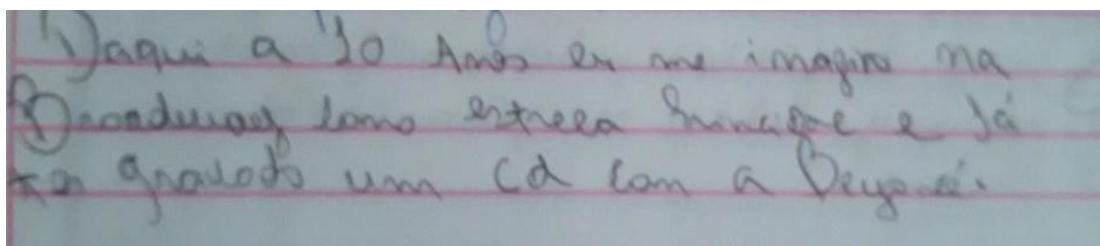 Daqui a 10 Anos eu me imagino na
Broadway como estrela principe e Já
ter gravado um Cd com a Beyoncé.